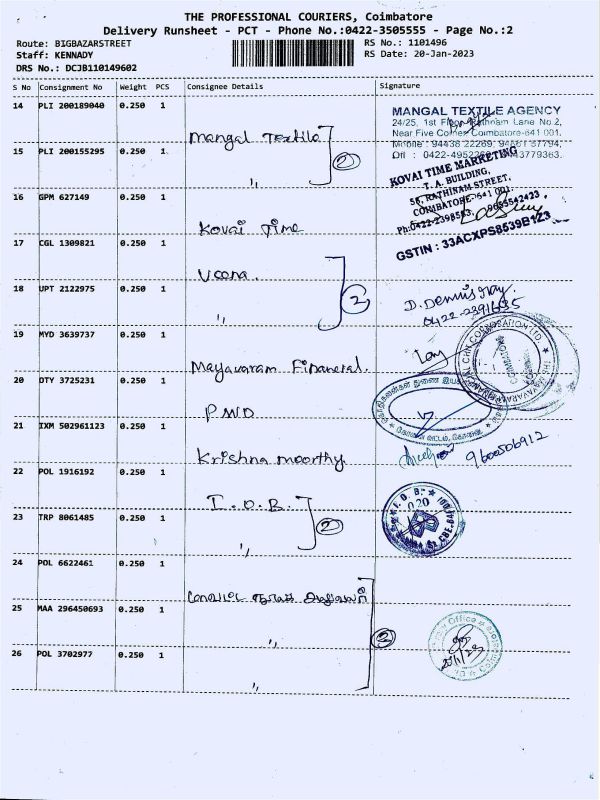 THE PROFESSIONAL COURIERS, Coimbatore
Delivery Runsheet - PCT - Phone No.:0422-3505555 - Page No.:2
Route: BIGBAZARSTREET
RS No.: 1101496
Staff: KENNADY
RS Date: 20-Jan-2023
DRS No.: DCJB110149602
S No Consignment No Weight PCS Consignee Details Signature
14 PLI 200189040 0.250 1
Mangal Textile
MANGAL TEXTILE AGENCY
24/25, 1st Floor, Rathinam Lane No.2,
Near Five Corner, Coimbatore-641 001.
Mobile : 94438 22269,
Off : 0422-4952
15 PLI 200155295 0.250 1
"
2
KOVAI TIME MARKETING
T. A. BUILDING,
56, RATHINAM STREET,
COIMBATORE-641 001.
GSTIN : 33ACXPS8539B1Z3
16 GPM 627149 0.250 1
Kovai Time
17 CGL 1309821 0.250 1
Veena.
18 UPT 2122975 0.250 1
"
2
D. Dennis
0422-2391635
19 MYD 3639737 0.250 1
Mayavaram Financial.
20 DTY 3725231 0.250 1
PWD
21 IXM 502961123 0.250 1
Krishna moorthy
9600506912
22 POL 1916192 0.250 1
I.O.B.
I. O. B.
23 TRP 8061485 0.250 1
"
2
24 POL 6622461 0.250 1
25 MAA 296450693 0.250 1
"
2
Office
20/1/23
26 POL 3702977 0.250 1
"